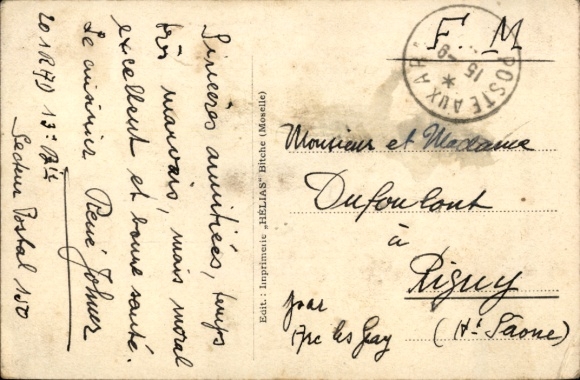 Sincères amitiées, temps
très mauvais, mais moral
excellent et bonne santé.
Le canonnier René Johner
201 R.A.D 13e Bie
Secteur Postal 150
Edit.: Imprimerie „HÉLIAS" Bitche (Moselle)
F. M
POSTE AUX AR
15-9
Monsieur et Madame
Dufoulont
à
Rigny
par
(Hte Saone)